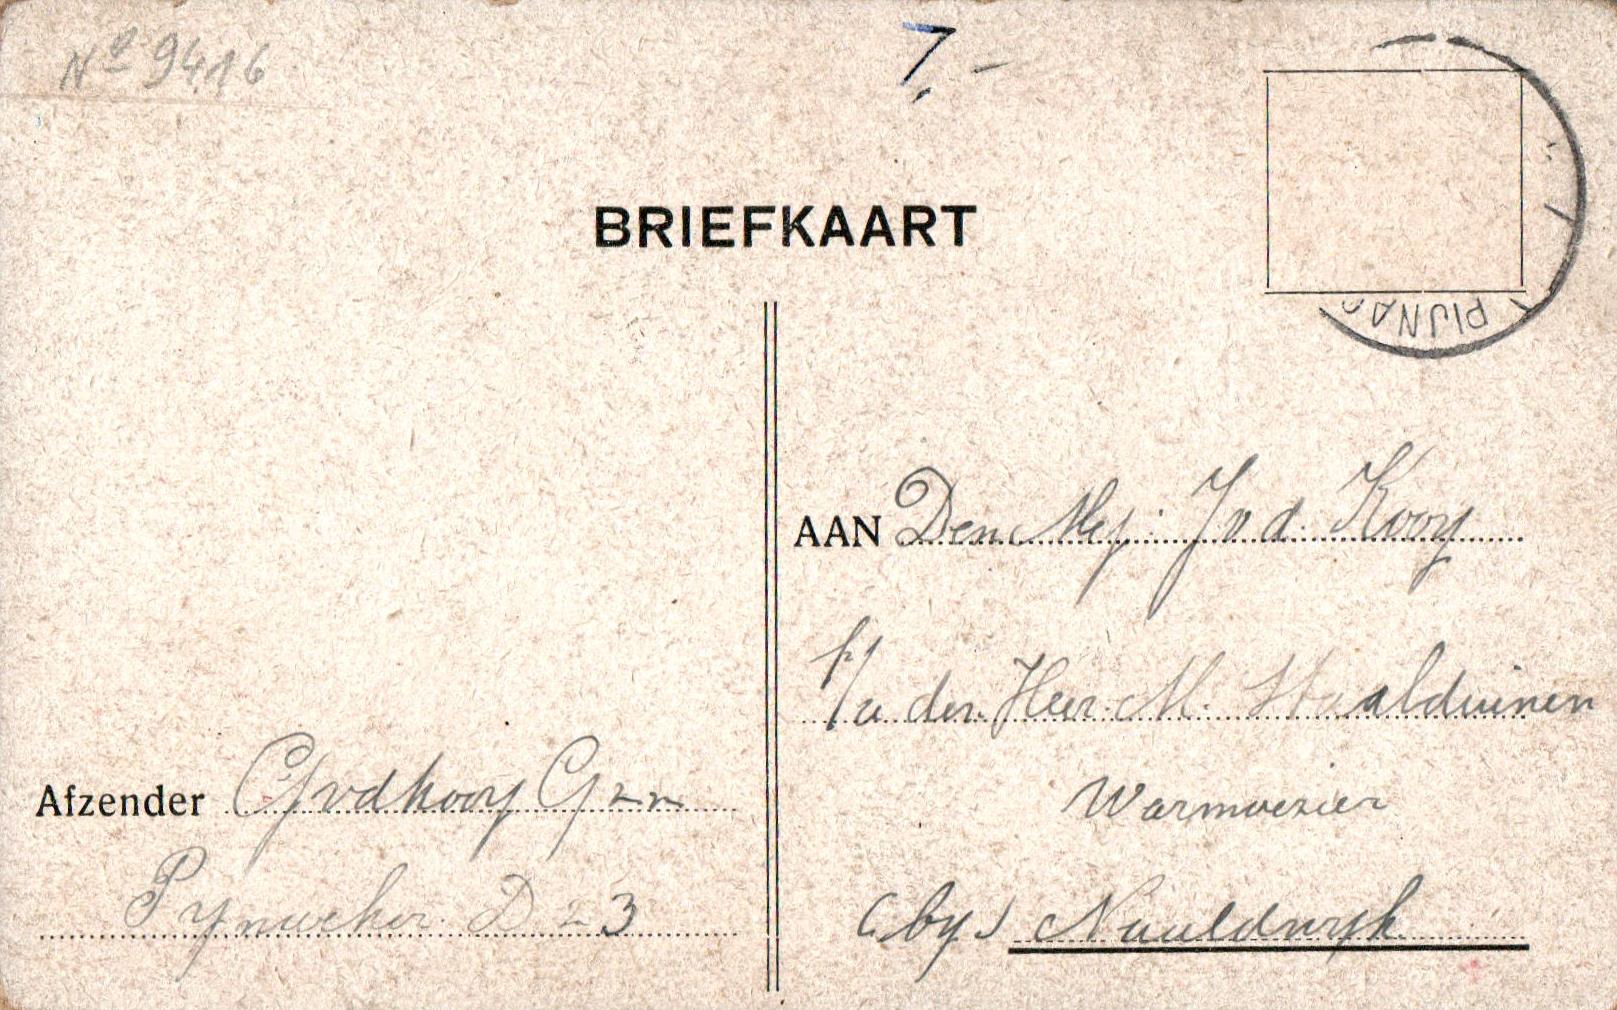 Nº 9416
7.-
BRIEFKAART
PIJNAC
AAN Den Mej. J v. d. Kooy
p/a den Heer M. Staalduinen
Warmoezier
(by) Naaldwyk
Afzender GJvdkooy Gzn
Pynacker D 23